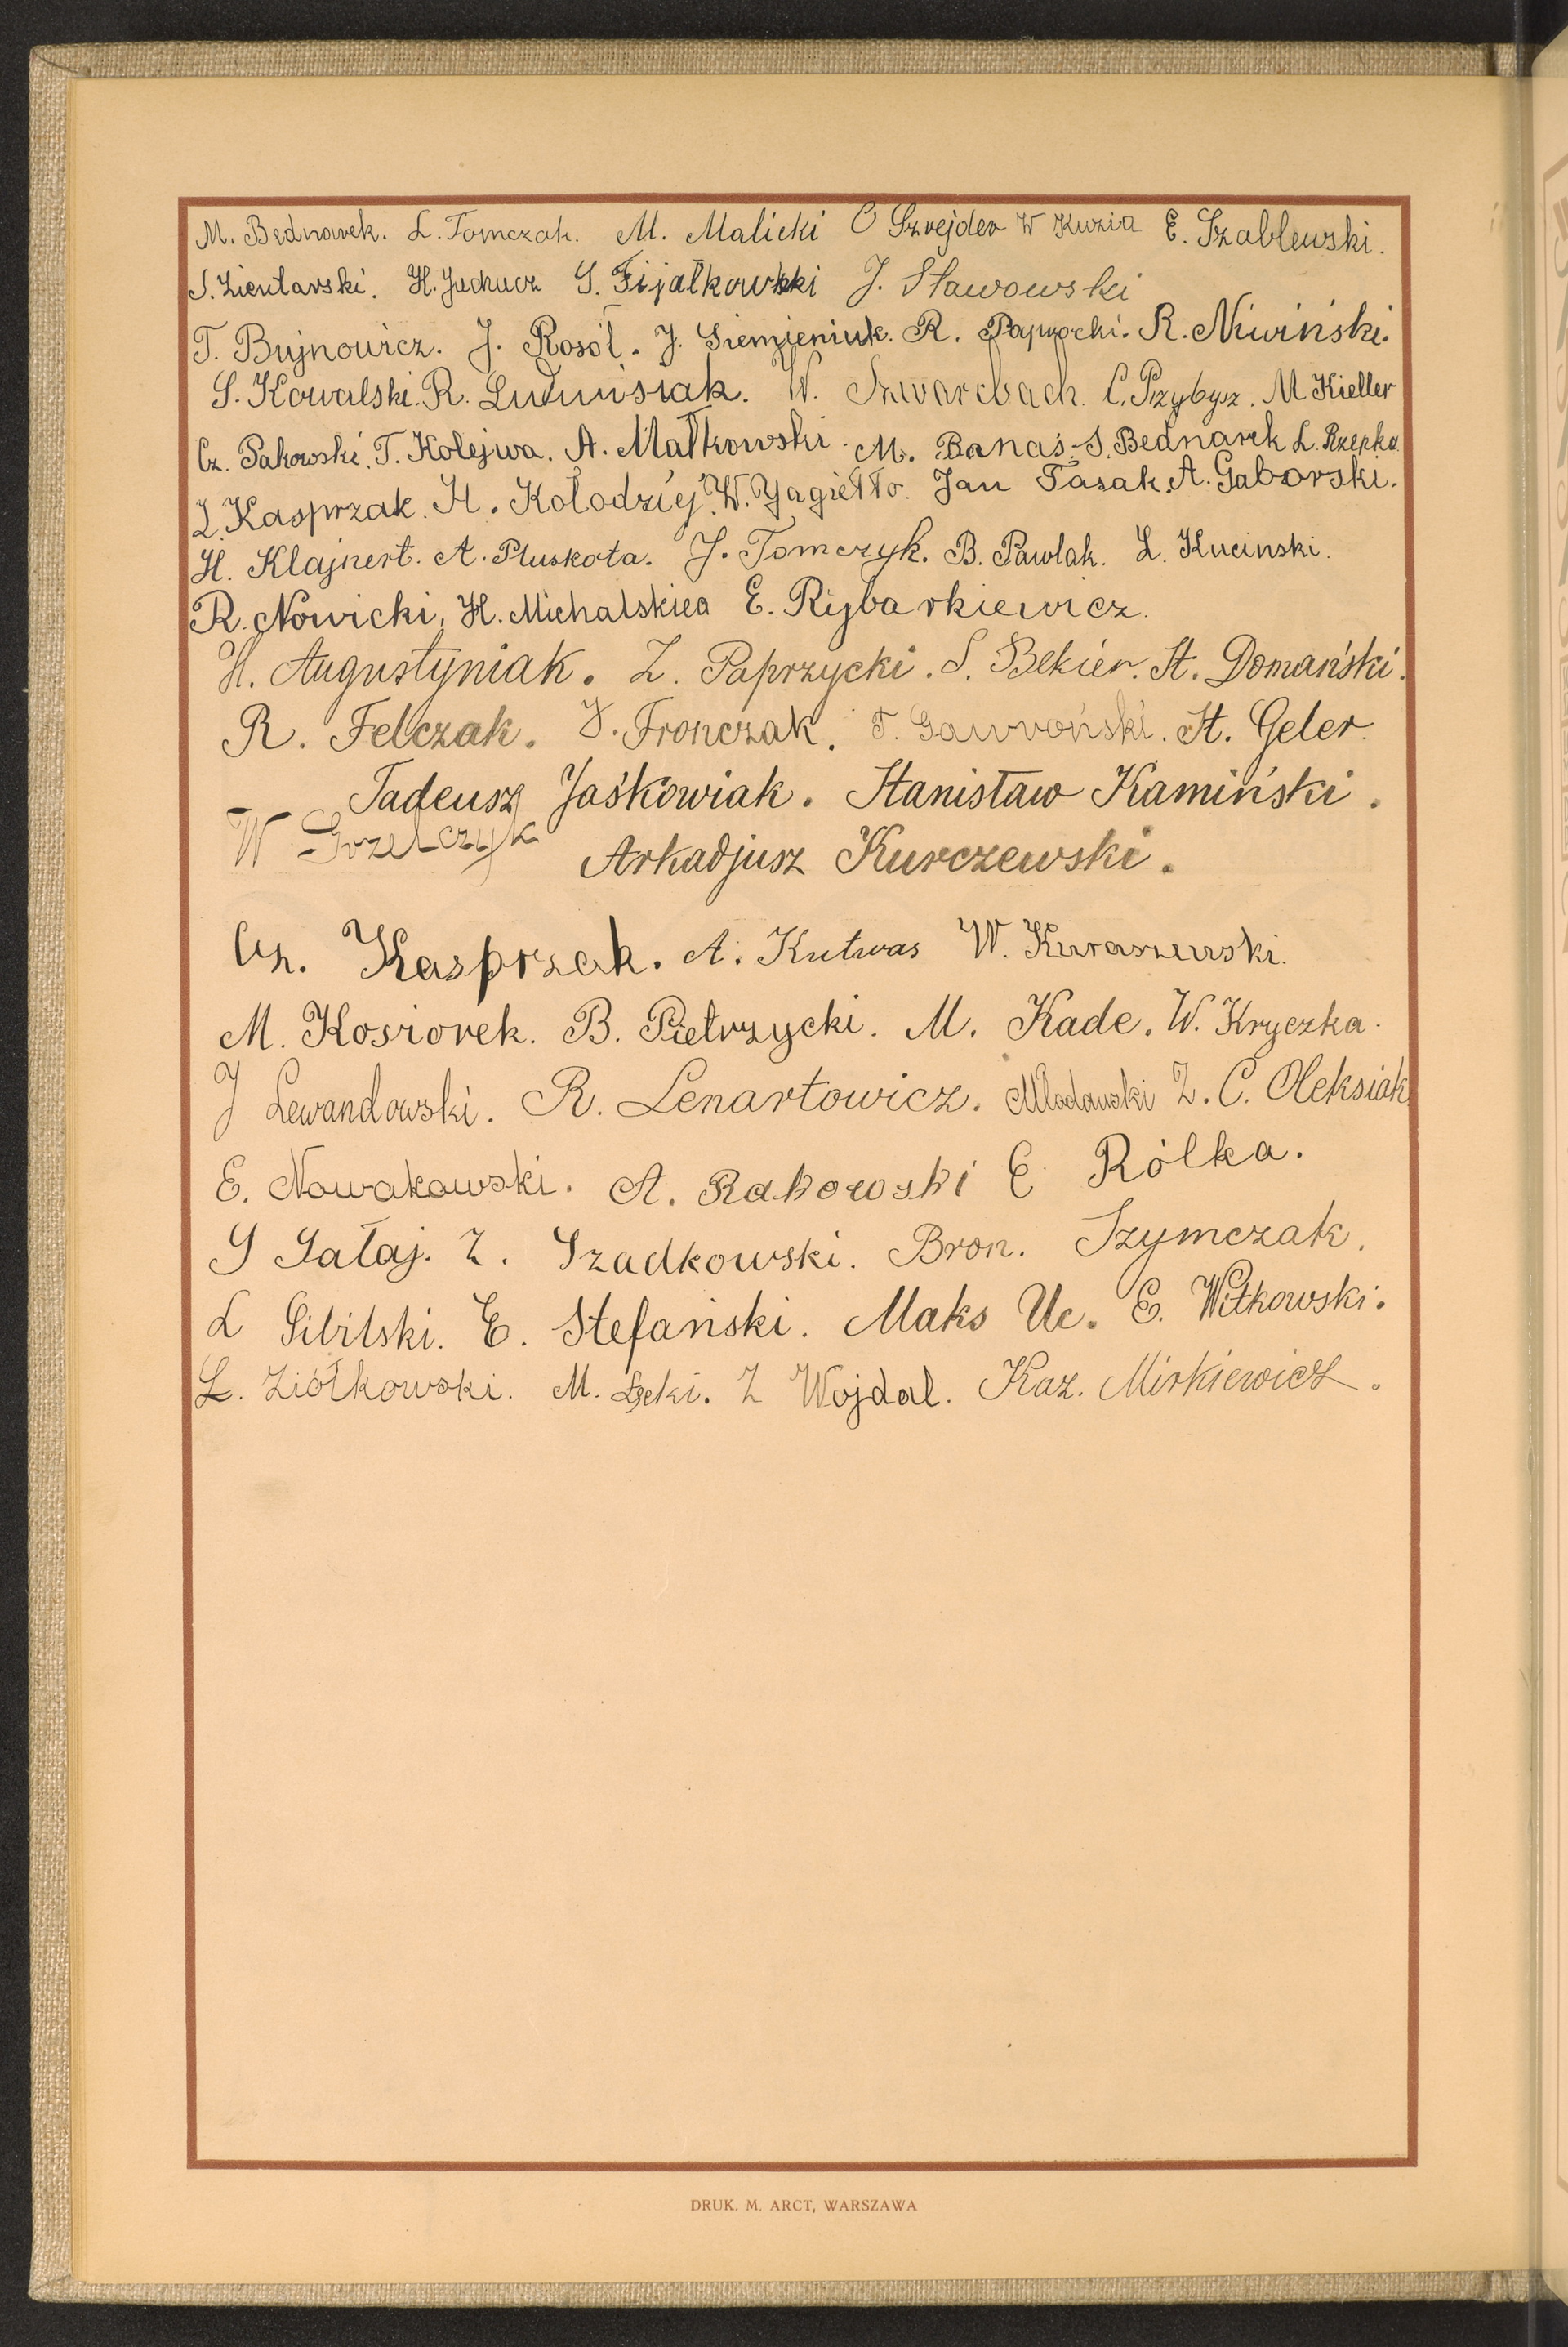 M. Bednarek. L. Tomczak. M. Malicki O Szrejder W Kuzia E. Szablewski.
S. Zientarski. H. Juchacz S. Fijałkowski J. Sławowski
T. Bujnowicz. J. Rosół. J. Siemieniuk. R. Paprocki. R. Niwiński.
S. Kowalski. R. Ludwisiak. W. Szwarcbach. C. Przybysz. M Kieller
Cz. Pakowski. T. Kolejwa. A. Małkowski. M. Banaś. S. Bednarek L. Rzepka
Z. Kasprzak. H. Kołodziej. W. Jagiełło. Jan Tasak. A. Gaborski.
H. Klajnert. A. Pluskota. J. Tomczyk. B. Pawlak. L. Kucinski.
R. Nowicki, H. Michalskiea E. Rybarkiewicz.
H. Augustyniak. Z. Paprzycki. S. Bekier. St. Domański.
R. Felczak. J. Fronczak. T. Gawroński. St. Geler.
Tadeusz Jaśkowiak. Stanisław Kamiński.
W Grzelczyk Arkadjusz Kurczewski.
Cz. Kasprzak. A. Kutwas W. Kuraszewski.
M. Kosiorek. B. Pietrzycki. M. Kade. W. Kryczka.
J Lewandowski. R. Lenartowicz. Młodawski Z. C. Oleksiak
E. Nowakowski. A. Rakowski E Rólka.
S Sałaj. Z. Szadkowski. Bron. Szymczak.
L Sibilski. E. Stefański. Maks Uc. E. Witkowski.
L. Ziółkowski. M. Łęcki. Z Wojdal. Kaz. Mirkiewicz.
DRUK. M. ARCT, WARSZAWA